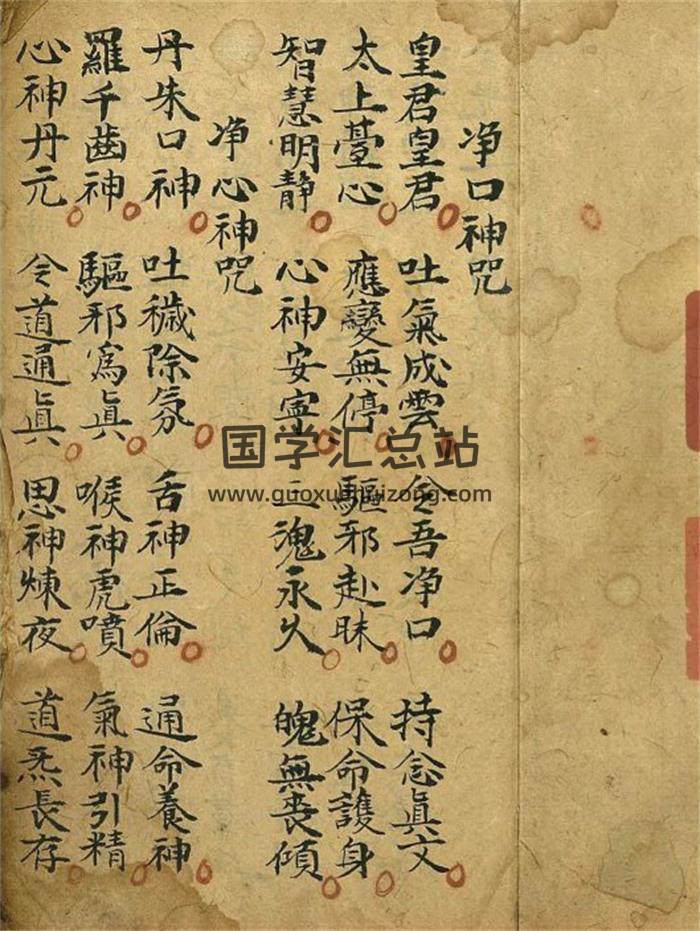 净口神咒
皇君皇君 吐氣成雲 令吾净口 持念眞文
太上臺心 應變無停 驅邪赴昧 保命護身
智慧明静 心神安寧 三魂永久 魄無喪傾
净心神咒
丹朱口神 吐穢除氛 舌神正倫 通命養神
羅千齒神 驅邪爲眞 喉神虎噴 氣神引精
心神丹元 令道通眞 思神煉夜 道炁長存
国学汇总站
www.guoxuehuizong.com